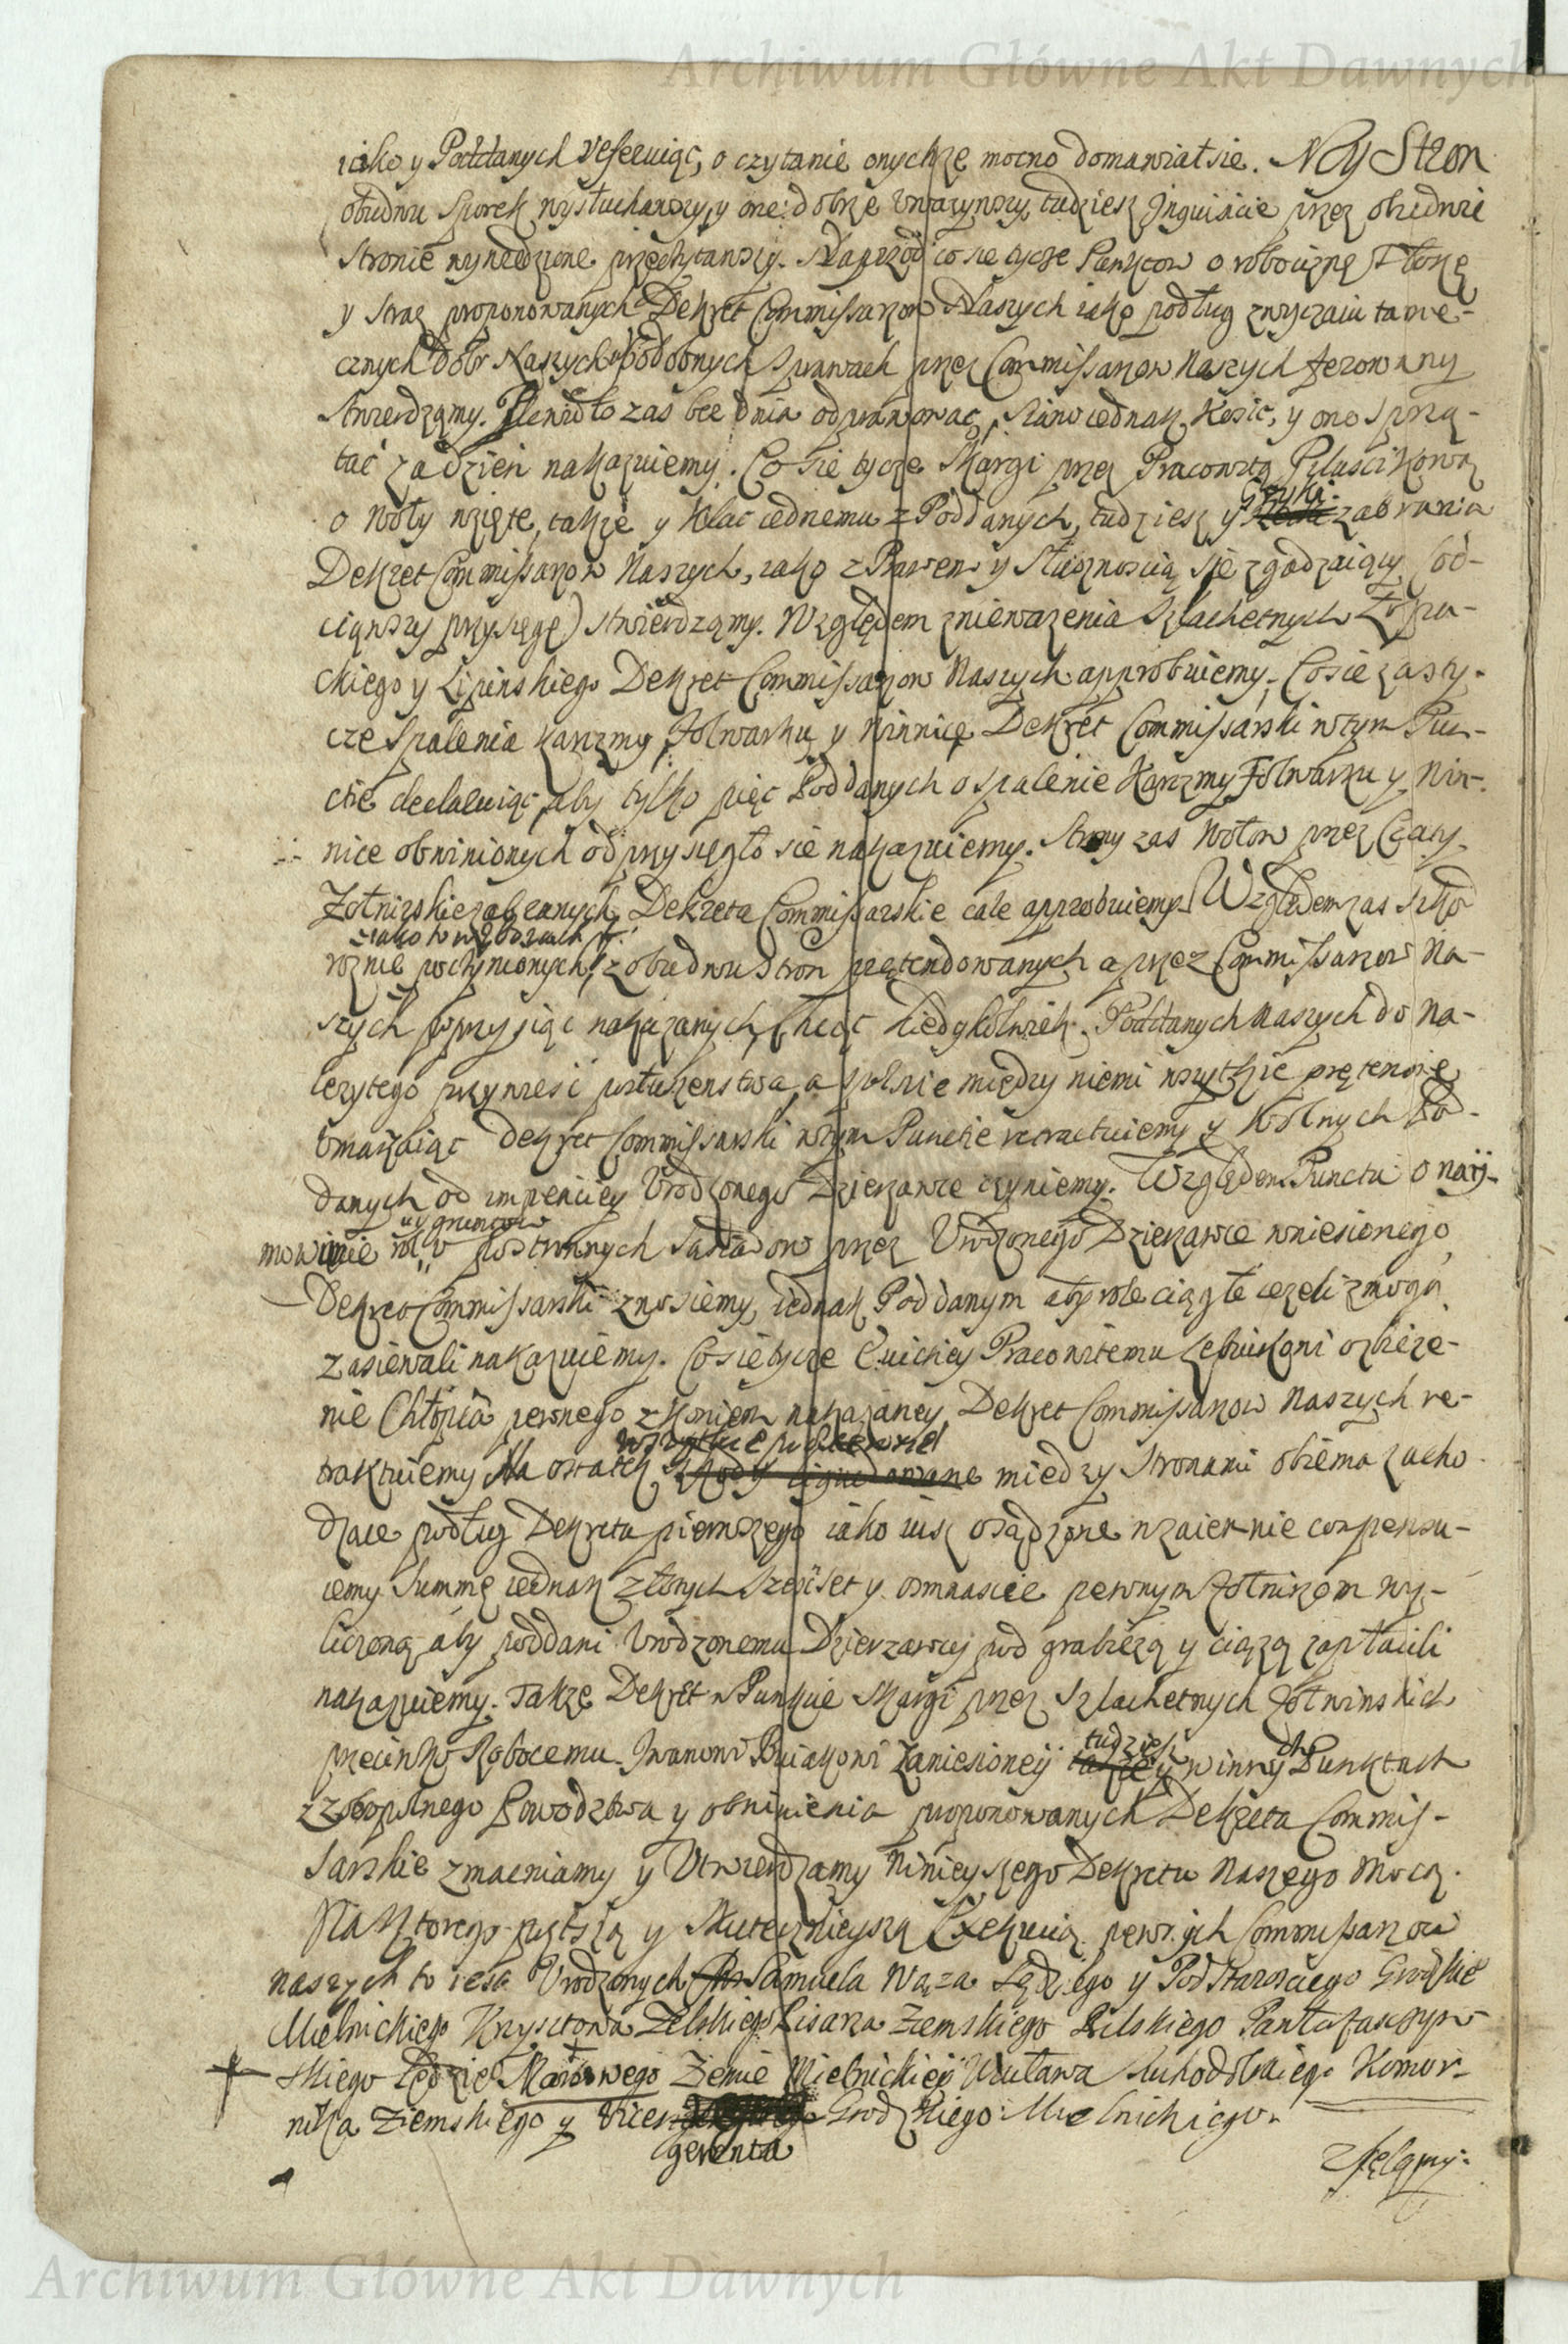 Archiwum Główne Akt Dawnych
iako y Poddanych reseruiąc, o czytanie onychże mocno domawiał sie. My Stron
obudwu Sporek wysłuchawszy, y one dobrze vważywszy, tudziesz Inquisicie przez obiedwie
stronie wywiedzione przeczytawszy. Naprzod co sie tycze Punctow o robociznę, Tłokę
y straz proponowanych Dekret Commissarzow Naszych iako podług zwyczaiu tame-
cznych dobr Naszych w podobnych Sprawach przez Commissarzow Naszych ferowany
stwierdzamy. Pleniwło zas bee dnia odprawować, siano iednak kosić, y one sprzą-
tać za dzien nakazuiemy. Co sie tycze Skargi przez Pracowitą
o woły wzięte, także y klacz iednemu z Poddanych, tudziesz y zabrania
Dekret Commissarzow Naszych, iako z Prawem y słusznoscią sie zgadzaiący (od-
ciąwszy przysięgę) stwierdzamy. Względem zniewazenia Szlachetnych
ckiego y Lipinskiego Dekret Commissarzow Naszych approbuiemy. Co sie zas ty-
cze Spalenia karczmy, folwarku y winnice Dekret Commissarski w tym Pun-
cie declaruiąc, aby tylko pięć Poddanych o spalenie Karczmy, Folwarku y win-
nice obwinionych odprzysięgło sie nakazuiemy. Strony zas wołow przez Czaty
Żołnirskie zabranych, Dekreta Commissarskie cale approbuiemy. Względem zas szkod
iako to w zbozach etc.
roznie poczynionych, z obudwu stron pretendowanych a przez Commissarzow Na-
szych przysiąc nakazanych, chcąc kiedyżkolwiek Poddanych Naszych do na-
lezytego przywiesć posłuszenstwa, a spolnie między niemi wszytkie pretensie
vmarzaiąc Dekret Commissarski w tym Puncie retractuiemy y wolnych Pod-
danych od impeticiey Vrodzonego Dzierzawce czyniemy. Względem Punctu o naij-
y gruntow
mowanie rol v postronnych sasiadow przez Vrodzonego Dzierzawce wniesionego
Dekret Commissarski znosiemy, iednak Poddanym aby role ciągłe iezeli zmogą
zasiewali nakazuiemy. Co sie tycze Euictiey Pracowitemu o zbieże-
nie Chłopca pewnego z koniem nakazaney, Dekret Commissarzow Naszych re-
wszytkie pretensie
traktuiemy Na ostatek szkody liquidowane między stronami obiema zacho
dzące podług Dekretu pierwszego iako iusz osądzone wzaiemnie conpensu-
iemy Summę iednak złotych szescset y osmnascie pewnym żołnirzom wy-
liczoną aby poddani Vrodzonemu Dzierzawcy pod grabieżą y ciążą zapłacili
nakazuiemy. Także Dekret w Punkcie skargi przez Szlachetnych Żołwinskich
tudziesz
przeciwko Robocemu Iwanowi zaniesioney także y w innych Punktach
z zobopolnego Powodztwa y obwinienia proponowanych Dekreta Commis-
sarskie zmacniamy y Vtwierdzamy ninieyszego Dekretu Naszego mocą.
Na ktorego prętszą y skutecznieyszą Exekucią pewnych Commissarzow
naszych to iest Vrodzonych Samuela Wąza Sędziego y PodStarosciego Grodskie
Mielnickiego Krysztofa Zelskiego Pisarza Ziemskiego Bilskiego
skiego Ziemie Mielnickiey Wacława Suchodolskiego Komor-
nika Ziemskiego y Vices Grodzkiego Mielnickiego.
gerenta
Zsełamy.
Archiwum Główne Akt Dawnych